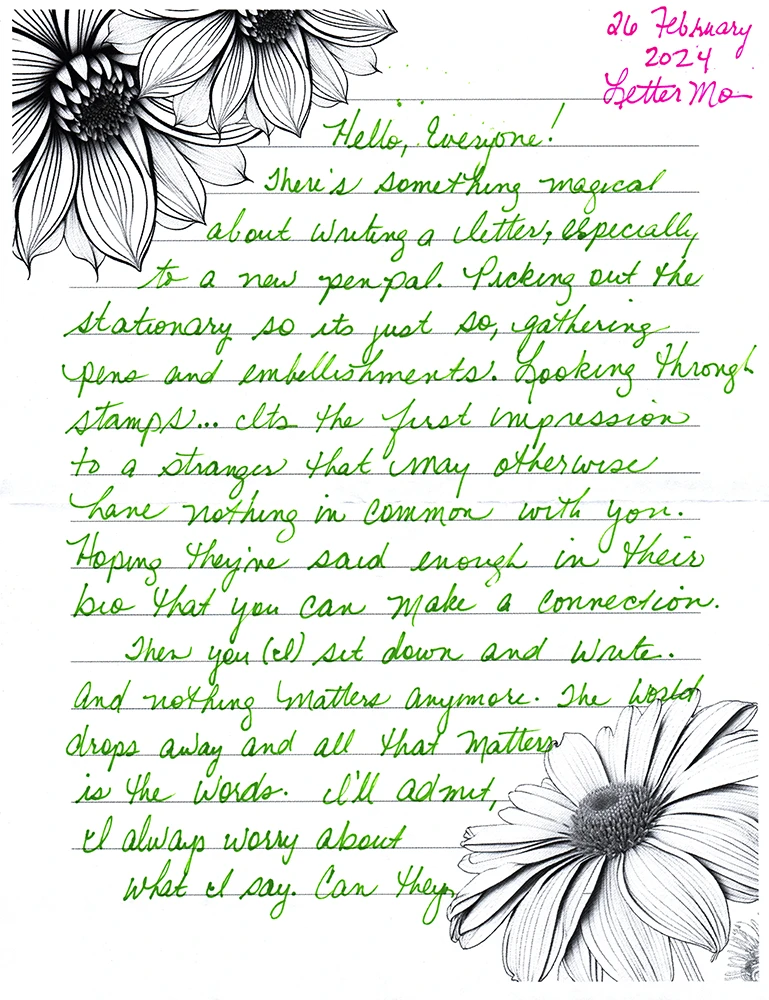 26 February
2024
Letter Mo
Hello, Everyone!
There's something magical
about writing a letter, especially
to a new pen pal. Picking out the
stationary so its just so, gathering
pens and embellishments. Looking through
stamps... Its the first impression
to a stranger that may otherwise
have nothing in common with you.
Hoping they've said enough in their
bio that you can make a connection.
Then you (I) sit down and write.
And nothing matters anymore. The world
drops away and all that matters
is the words. I'll admit,
I always worry about
what I say. Can they